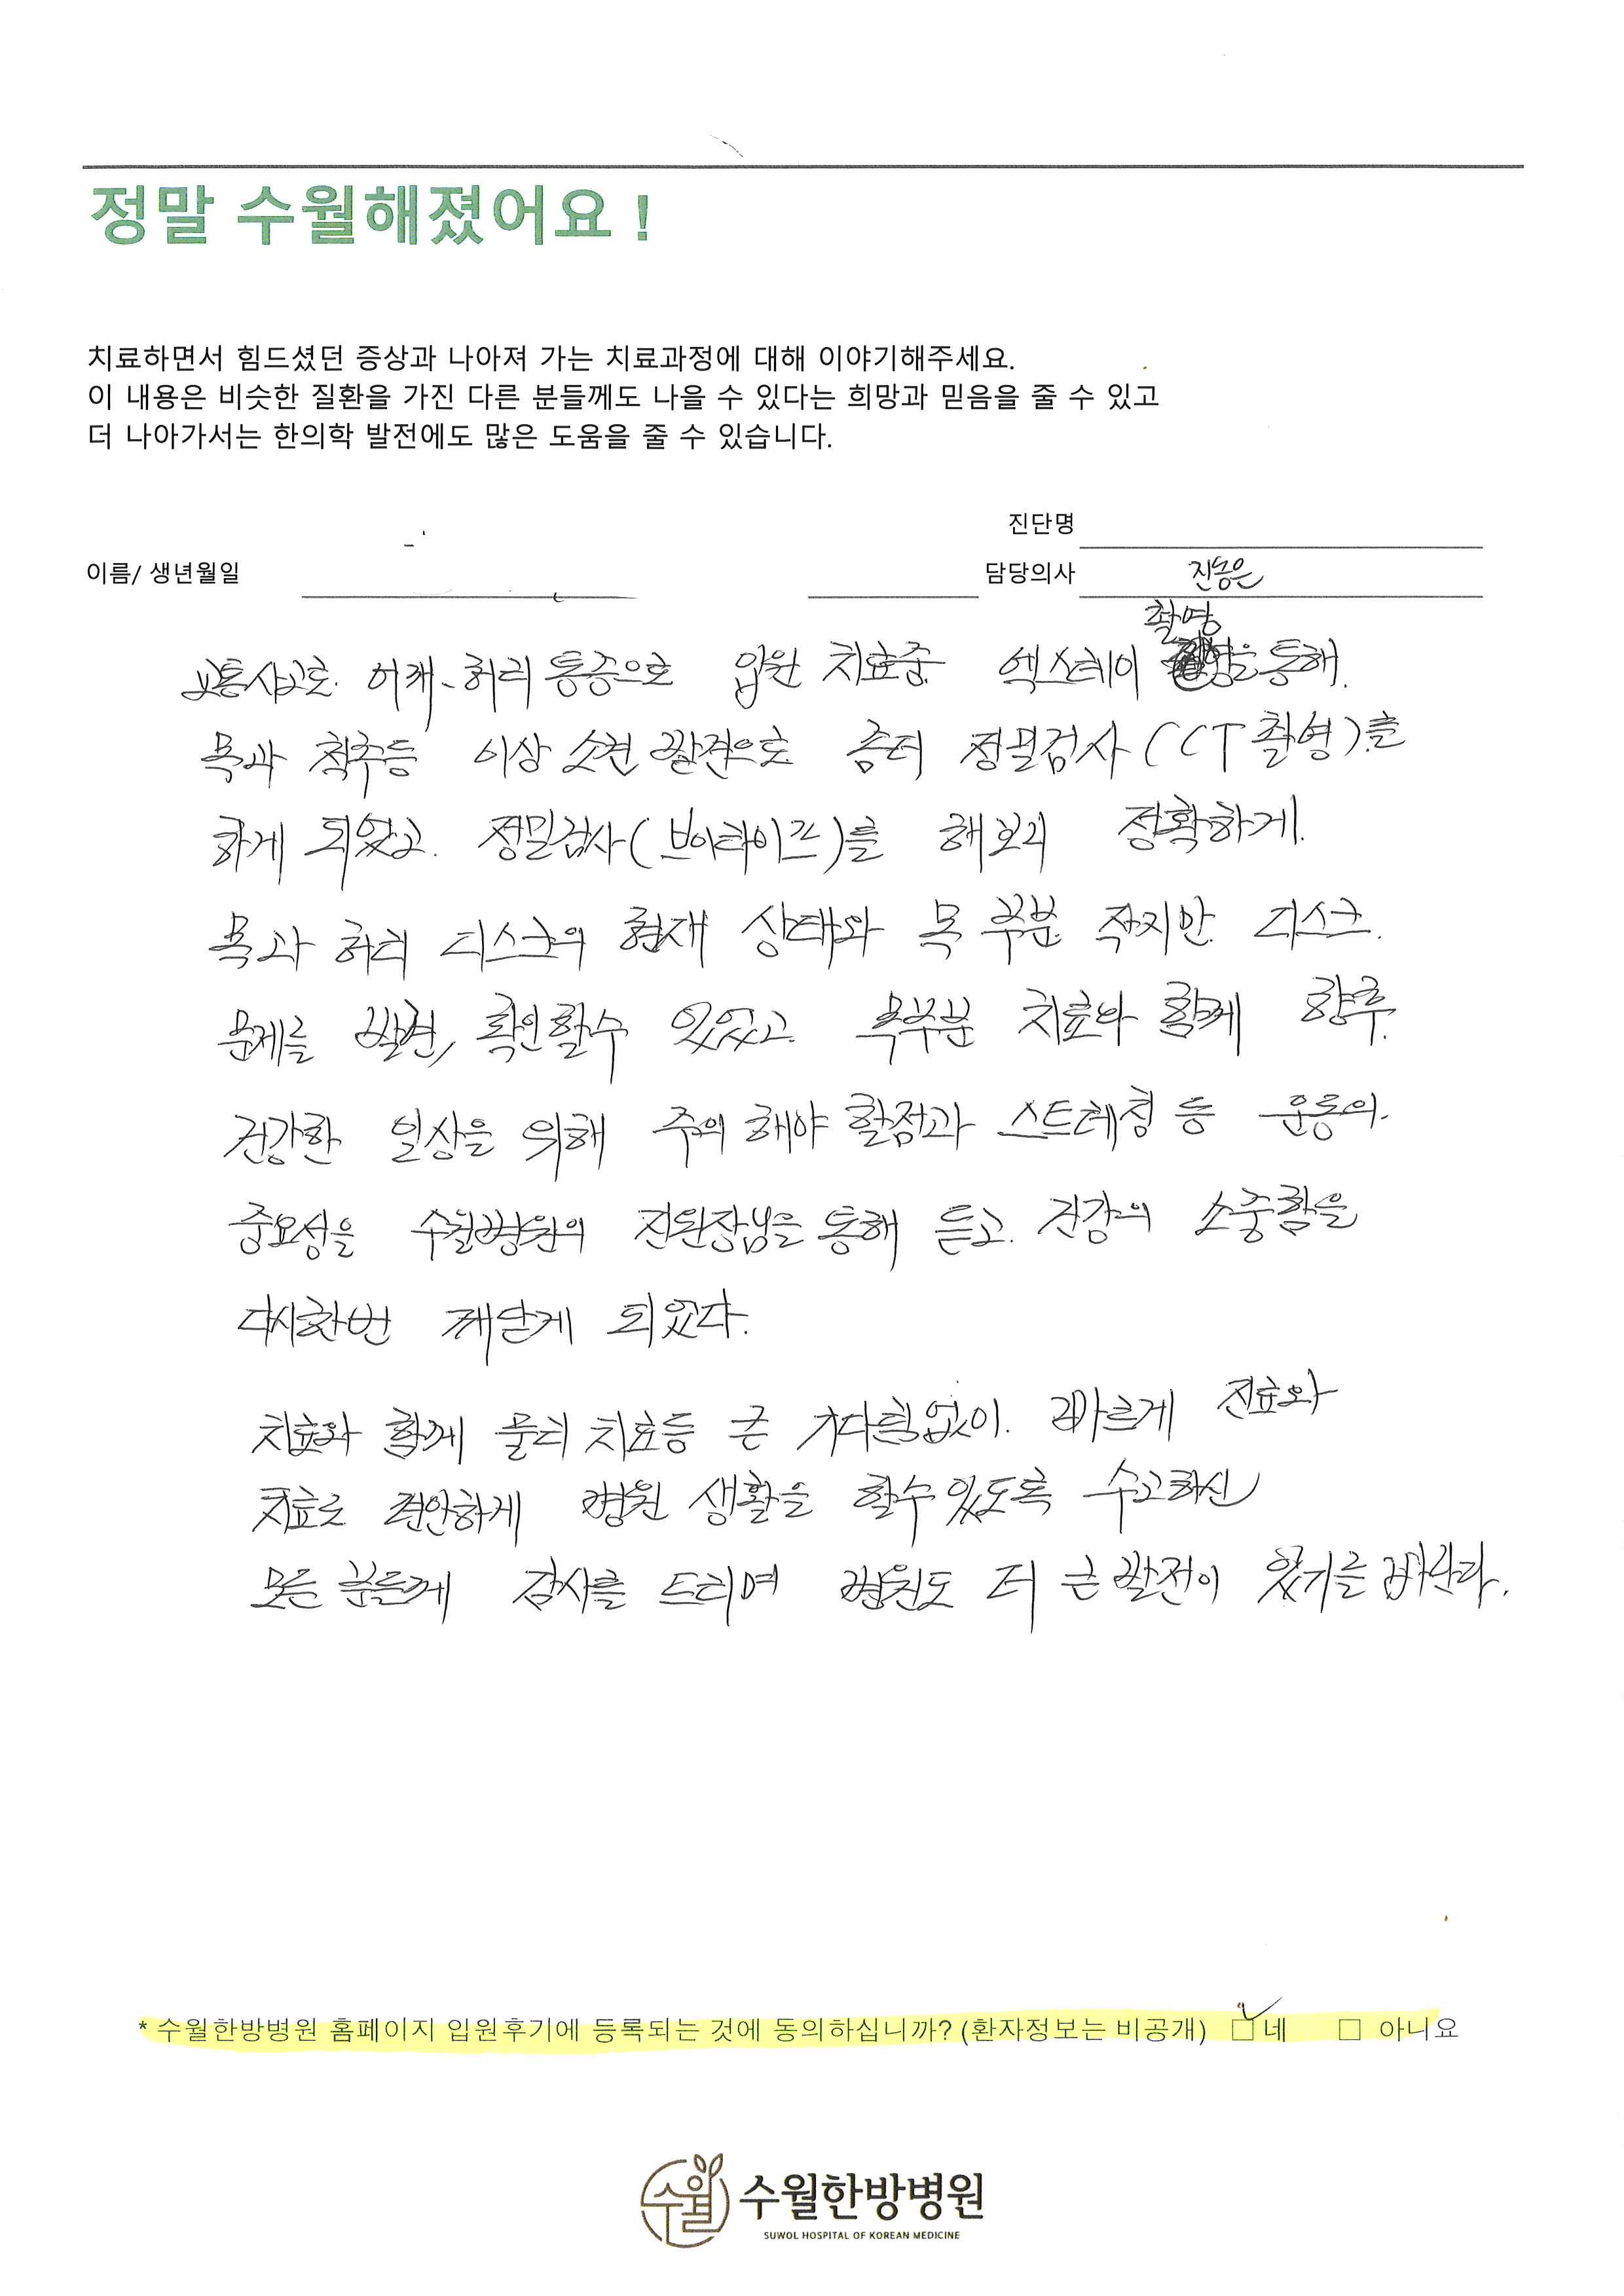 정말 수월해졌어요 !
치료하면서 힘드셨던 증상과 나아져 가는 치료과정에 대해 이야기해주세요.
이 내용은 비슷한 질환을 가진 다른 분들께도 나을 수 있다는 희망과 믿음을 줄 수 있고
더 나아가서는 한의학 발전에도 많은 도움을 줄 수 있습니다.
진단명
이름/ 생년월일
담당의사 진동은
촬영
교통사고로. 어깨、허리 통증으로 입원 치료중. 엑스레이 을 통해.
목과 척추등 이상 소견 발견으로. 좀더 정밀검사 (CT 촬영)를
하게 되었고. 정밀검사(브이타이프)를 해보니 정확하게.
목과 허리 디스크의 현재 상태와 목 부분. 작지만. 디스크.
문제를 발견, 확인할수 있었고. 목부분 치료와 함께 향후.
건강한 일상을 위해 주의 해야 할점과 스트레칭 등 운동의.
중요성을 수월병원의 진원장님을 통해 듣고. 건강의 소중함을
다시한번 깨닫게 되었다.
치료와 함께 물리 치료등 큰 기다림없이. 빠르게 진료와
치료로 편안하게 병원 생활을 할수 있도록 수고하신
모든 분들께 감사를 드리며 병원도 더 큰 발전이 있기를 바란다.
* 수월한방병원 홈페이지 입원후기에 등록되는 것에 동의하십니까? (환자정보는 비공개) ☑ 네 □ 아니요
수월 수월한방병원
SUWOL HOSPITAL OF KOREAN MEDICINE